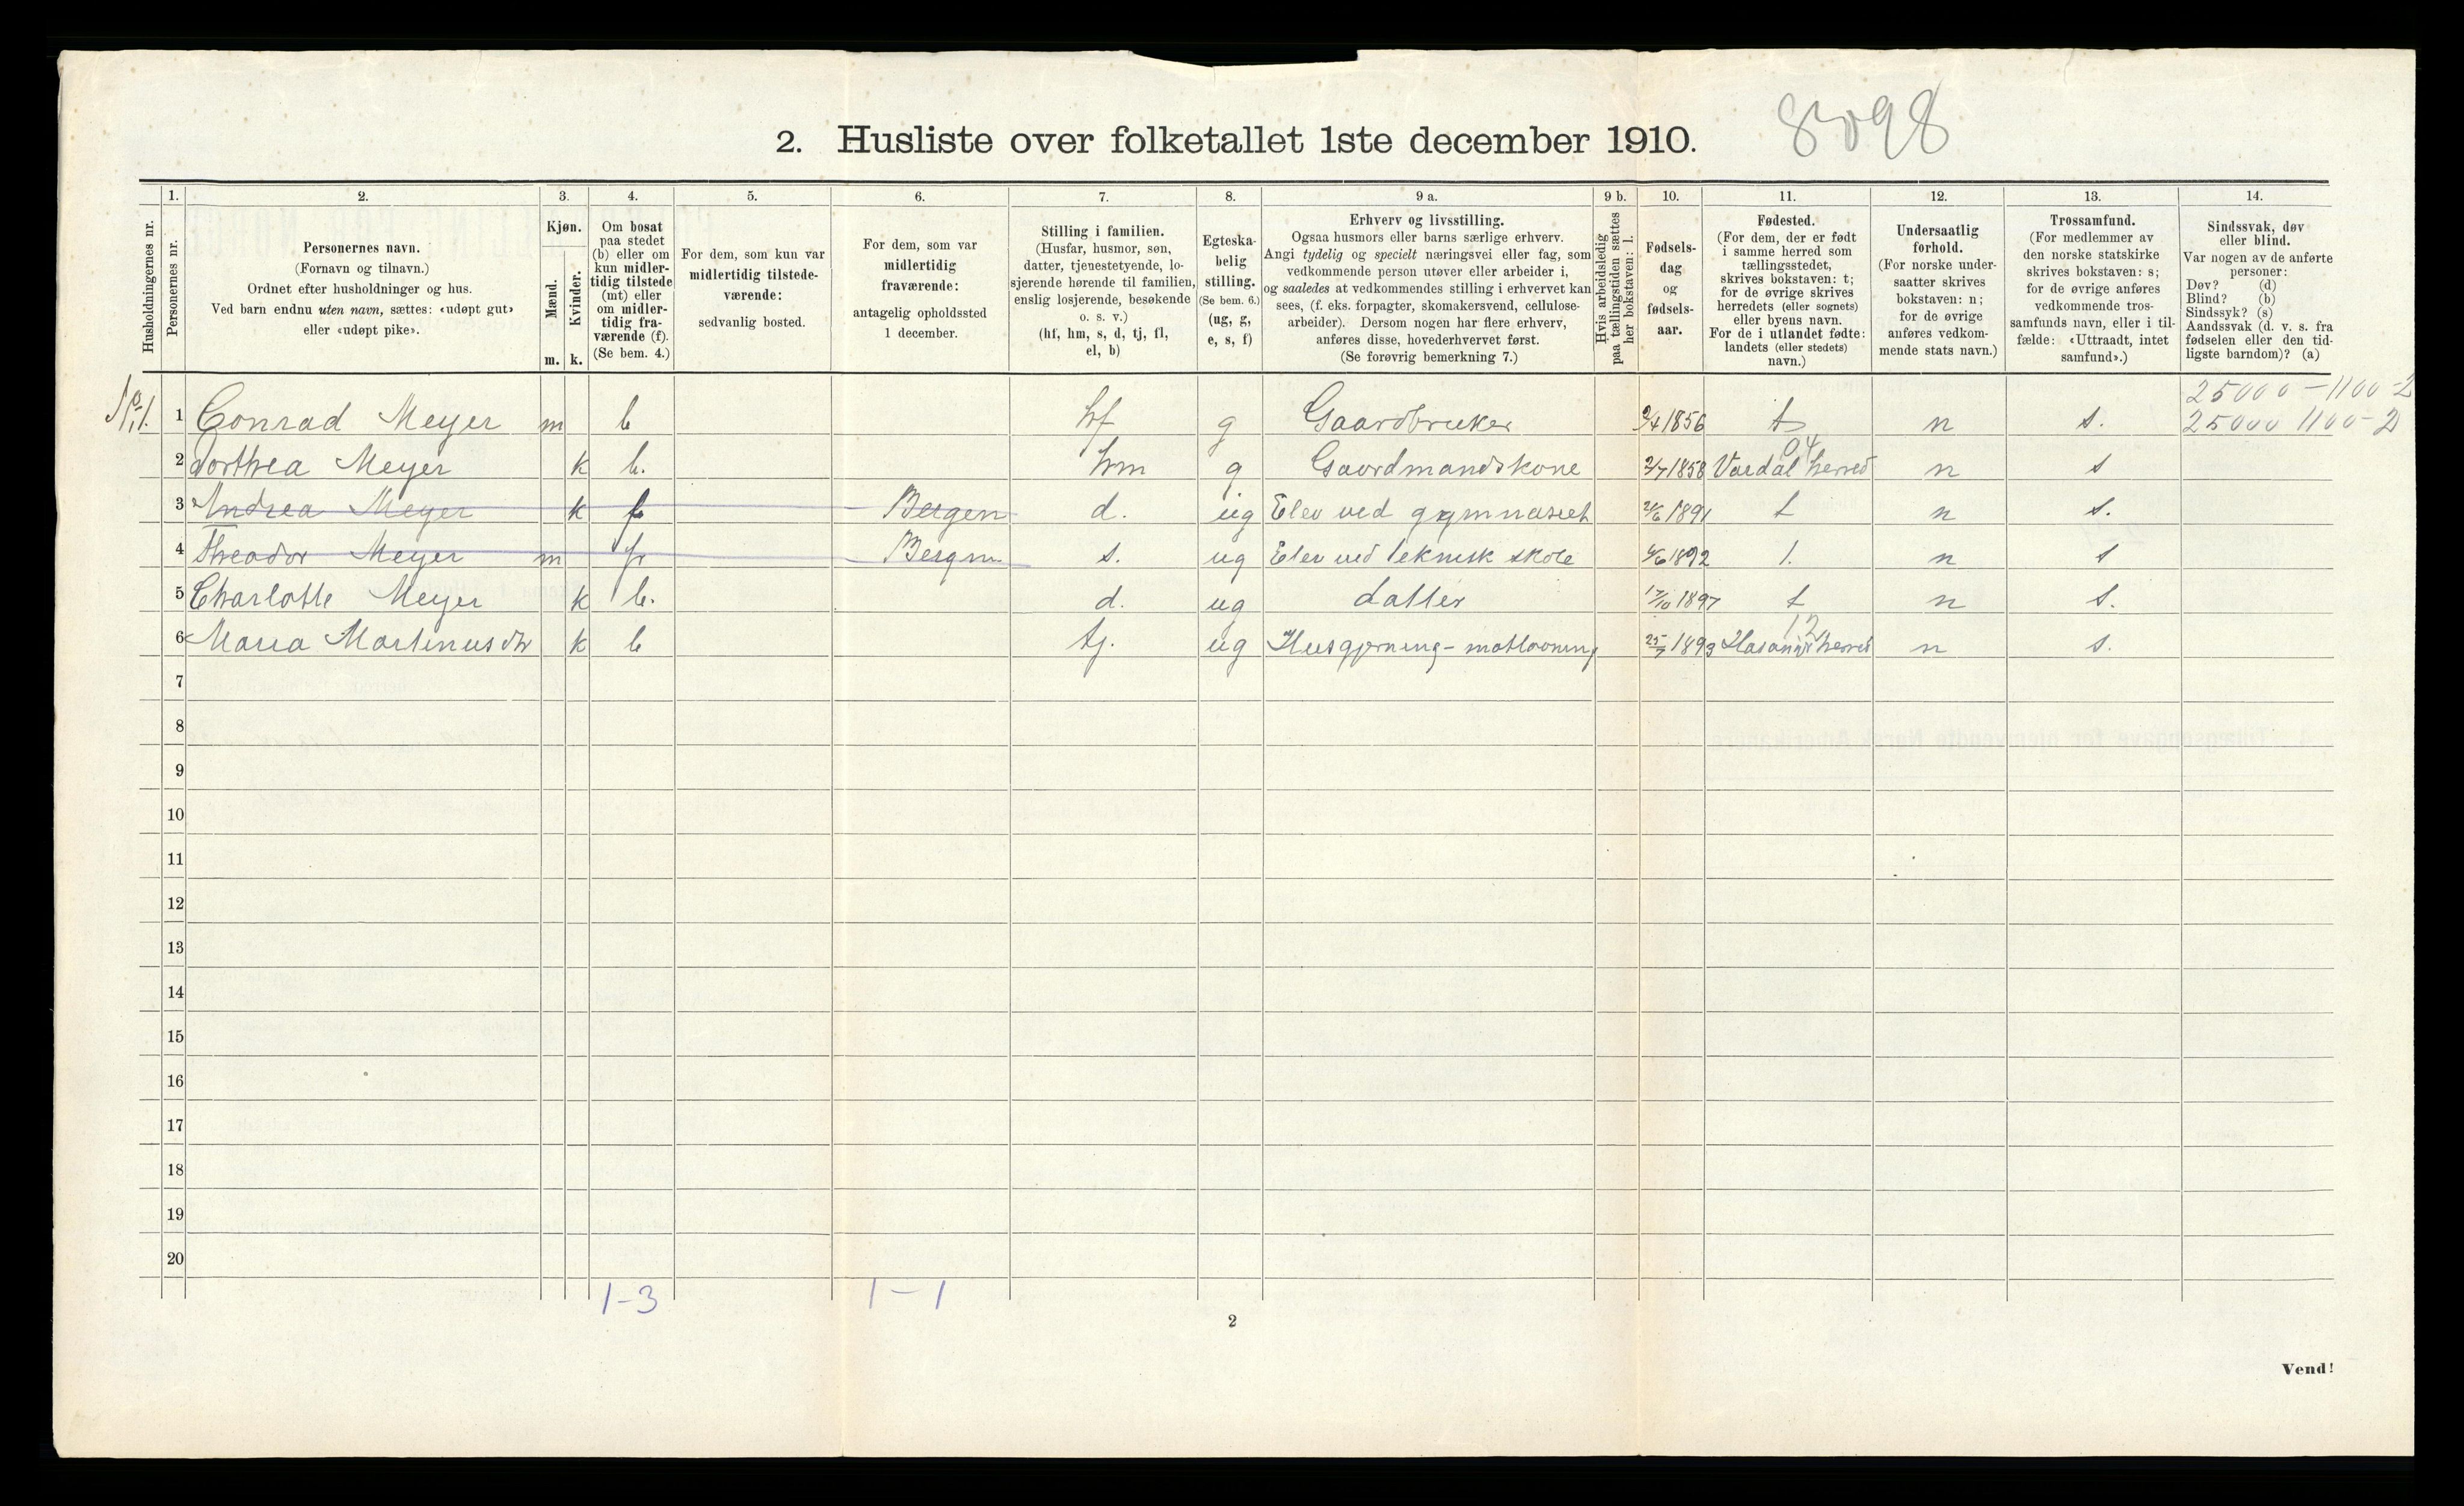 2. Husliste over folketallet 1ste december 1910. 8098
Husholdningernes nr.
1. Personernes nr.
2. Personernes navn.
(Fornavn og tilnavn.)
Ordnet efter husholdninger og hus.
Ved barn endnu uten navn, sættes: «udøpt gut»
eller «udøpt pike».
3. Kjøn.
Mænd. m.
Kvinder. k.
4. Om bosat
paa stedet
(b) eller om
kun midler-
tidig tilstede
(mt) eller
om midler-
tidig fra-
værende (f).
(Se bem. 4.)
5. For dem, som kun var
midlertidig tilstede-
værende:
sedvanlig bosted.
6. For dem, som var
midlertidig
fraværende:
antagelig opholdssted
1 december.
7. Stilling i familien.
(Husfar, husmor, søn,
datter, tjenestetyende, lo-
sjerende hørende til familien,
enslig losjerende, besøkende
o. s. v.)
(hf, hm, s, d, tj, fl,
el, b)
8. Egteska-
belig
stilling.
(Se bem. 6.)
(ug, g,
e, s, f)
9 a. Erhverv og livsstilling.
Ogsaa husmors eller barns særlige erhverv.
Angi tydelig og specielt næringsvei eller fag, som
vedkommende person utøver eller arbeider i,
og saaledes at vedkommendes stilling i erhvervet kan
sees, (f. eks. forpagter, skomakersvend, cellulose-
arbeider). Dersom nogen har flere erhverv,
anføres disse, hovederhvervet først.
(Se forøvrig bemerkning 7.)
9 b. Hvis arbeidsledig
paa tællingstiden sættes
her bokstaven: l.
10. Fødsels-
dag
og
fødsels-
aar.
11. Fødested.
(For dem, der er født
i samme herred som
tællingsstedet,
skrives bokstaven: t;
for de øvrige skrives
herredets (eller sognets)
eller byens navn.
For de i utlandet fødte:
landets (eller stedets)
navn.)
12. Undersaatlig
forhold.
(For norske under-
saatter skrives
bokstaven: n;
for de øvrige
anføres vedkom-
mende stats navn.)
13. Trossamfund.
(For medlemmer av
den norske statskirke
skrives bokstaven: s;
for de øvrige anføres
vedkommende tros-
samfunds navn, eller i til-
fælde: «Uttraadt, intet
samfund».)
14. Sindssvak, døv
eller blind.
Var nogen av de anførte
personer:
Døv? (d)
Blind? (b)
Sindssyk? (s)
Aandssvak (d. v. s. fra
fødselen eller den tid-
ligste barndom)? (a)
25000 - 1100 - 2
1 Conrad Meyer m b hf g Gaardbruker 2/4 1856 t n s. 25000 1100 - 2
04
2 Dorthea Meyer k b. hm g Gaardmandskone 2/7 1858 Vardal herred n s
3 Andrea Meyer k f Bergen d. ug Elev ved gymnasiet 1891 t n s.
4 Theodor Meyer m f Bergen s. ug Elev ved teknisk skole 1892 t. n s
5 Charlotte Meyer k b. d. ug datter 17/10 1897 t n s.
12
6 Maria Martinusdtr k b tj. ug Husgjerning - matlavning 25/7 1893 herred n s.
7
8
9
10
11
12
13
14
15
16
17
18
19
20
1-3 1-1
2
Vend!